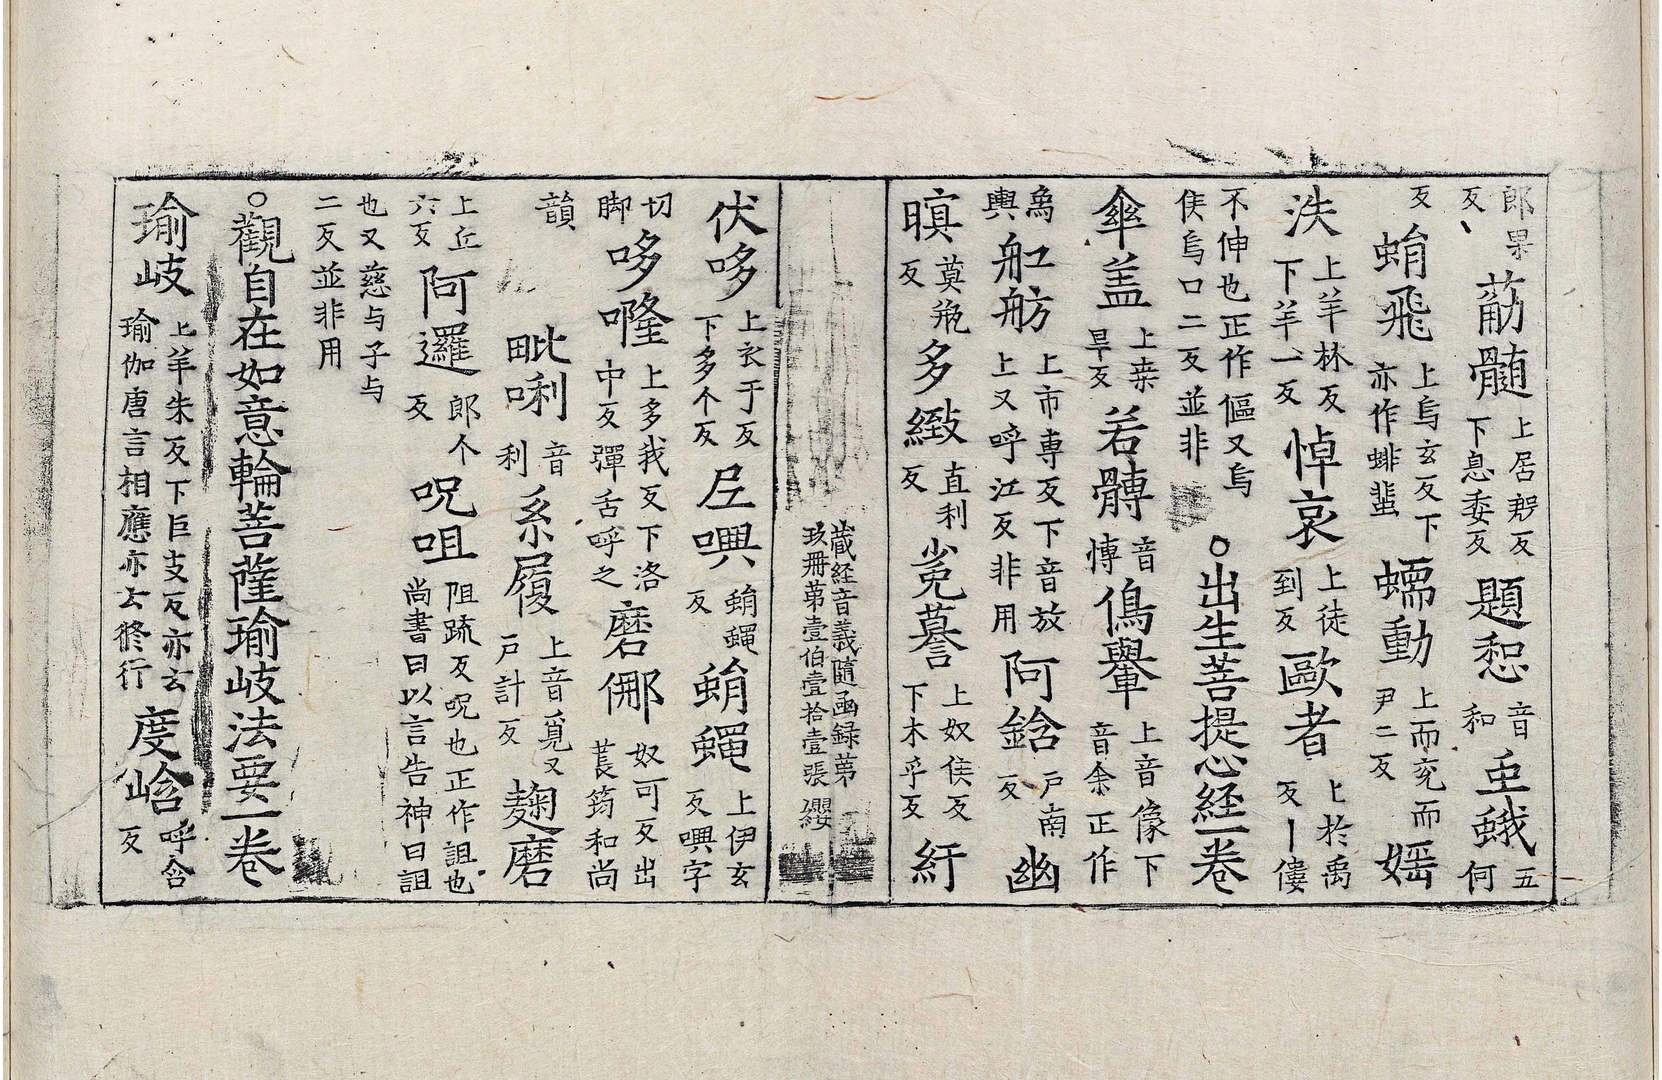 郎果反 䇶髓 上居䅥反下息委反 題惒 音和 𡉼蛾 五何
反 蜎飛 上烏玄反下亦作蜚 蠕動 上而兖而尹二反 婬
泆 上羊林反下羊一反 悼哀 上徒到反 歐者 上於禹反丨僂
不伸也正作傴又烏侯烏口二反並非 ○出生菩提心經一卷
傘盖 上桒旱反 若髆 音博 𠌥轝 上音像下音余正作
輿 舡舫 上市専反下音放又呼江反非用 阿鋡 戸南反 幽
暝 莫瓶反 多緻 直利反 㝹蟇 上奴侯反下木乎反 紆
藏経音義隨函録苐玖冊苐壹伯壹拾壹張 纓
伏哆 上衣于反下多个反 𡰱㘈 蜎蠅反 蜎蠅 上伊玄反㘈字
切脚 哆㘄 上多我反下洛中反彈舌呼之 磨㑚 奴可反出萇筠和尚
韻 毗唎 音利 系履 上音覓又戸計反 麹磨
上丘六反 阿邏 郎个反 呪咀 阻䟽反呪也正作詛也尚書曰以言告神曰詛
也又慈与子与二反並非用
○觀自在如意輪菩薩瑜岐法要一卷
瑜岐 上羊朱反下巨支反亦云瑜伽唐言相應亦云修行 度㟏 呼含反